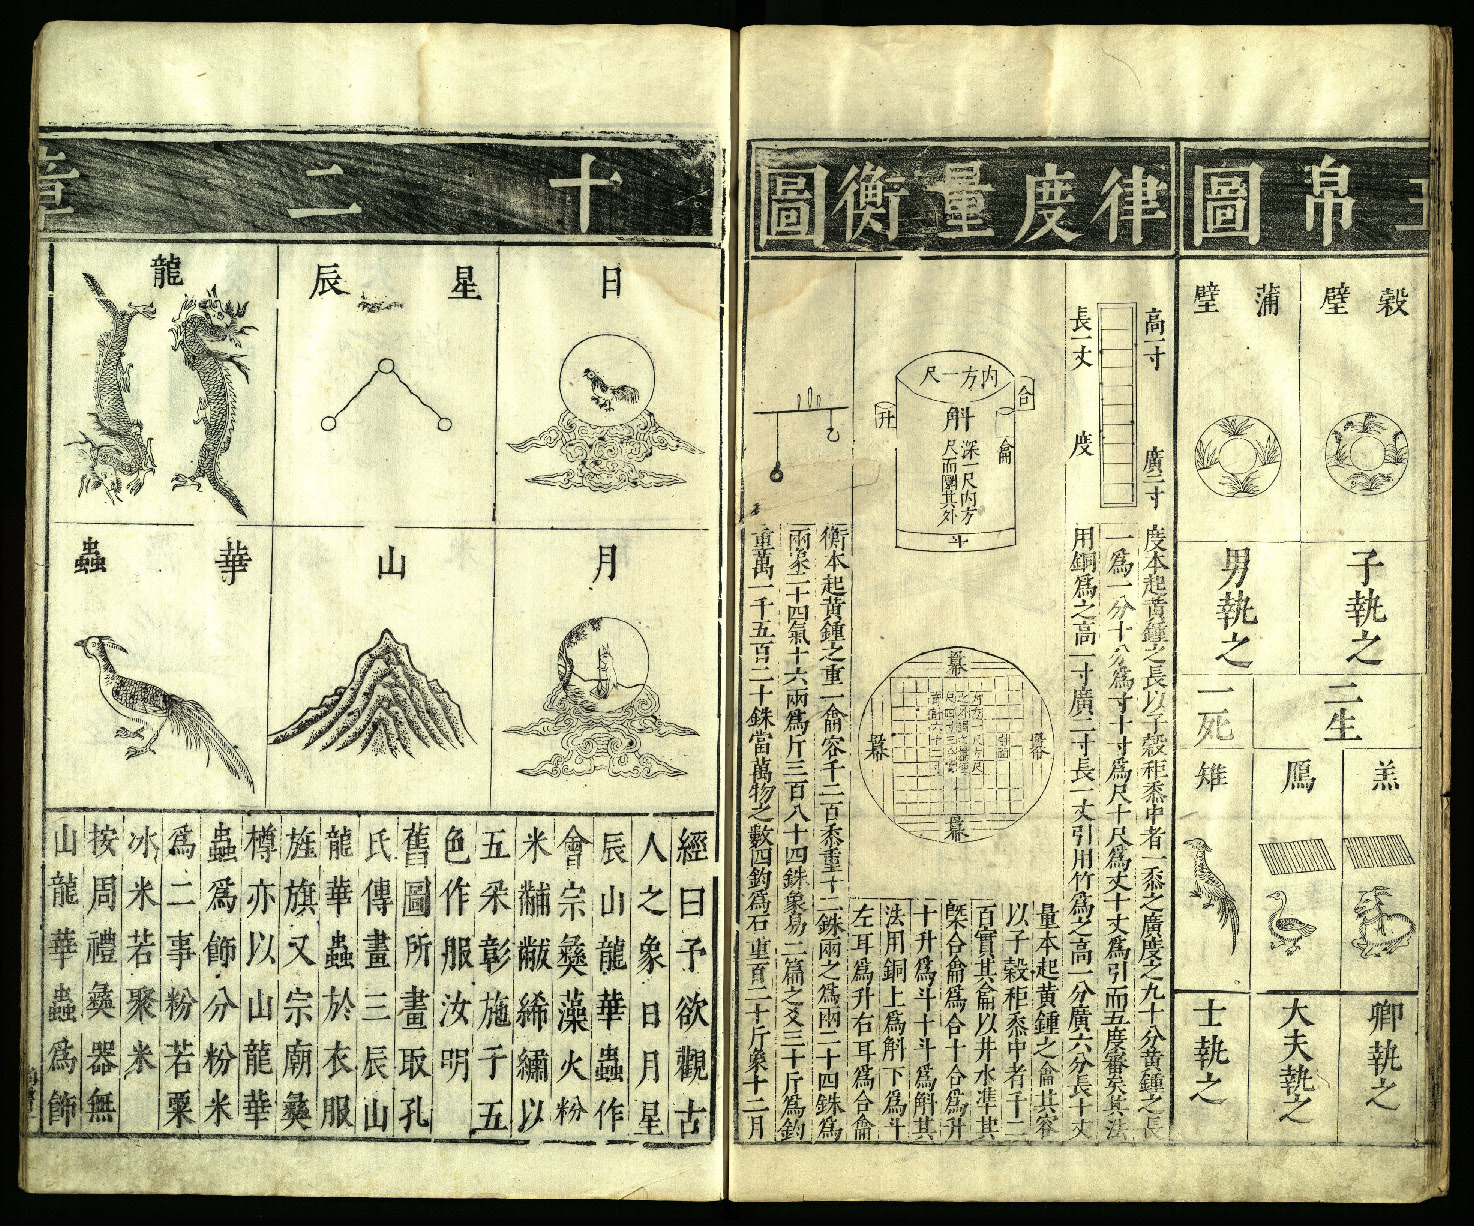 帛圖
榖璧
蒲璧
子執之
男執之
二生
一死
羔
鴈
雉
卿執之
大夫執之
士執之
律度量衡圖
高一寸
廣二寸
長一丈
度
度本起黃鍾之長以子榖秬黍中者一黍之廣度之九十分黃鍾之長
一爲一分十分爲寸十寸爲尺十尺爲丈十丈爲引而五度審矣其法
用銅爲之高一寸廣二寸長一丈引用竹爲之高一分廣六分長十丈
內方一尺
斛
深一尺內方
尺而圜其外
合
龠
升
斗
量本起黃鍾之龠其容
以子榖秬黍中者千二
百實其龠以井水準其
槩合龠爲合十合爲升
十升爲斗十斗爲斛其
法用銅上爲斛下爲斗
左耳爲升右耳爲合龠
衡本起黃鍾之重一龠容千二百黍重十二銖兩之爲兩二十四銖爲
兩象二十四氣十六兩爲斤三百八十四銖象易二篇之爻三十斤爲鈞
重萬一千五百二十銖當萬物之數四鈞爲石重百二十斤象十二月
十二章
日
星辰
龍
月
山
華蟲
經曰予欲觀古
人之象日月星
辰山龍華蟲作
會宗彝藻火粉
米黼黻絺繡以
五采彰施于五
色作服汝明
舊圖所畫取孔
氏傳畫三辰山
龍華蟲於衣服
旌旗又宗廟彝
樽亦以山龍華
蟲爲飾分粉米
爲二事粉若粟
冰米若聚米
按周禮彝器無
山龍華蟲爲飾